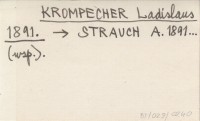 KROMPECHER Ladislaus
1891. → STRAUCH A. 1891...
(wsp.).